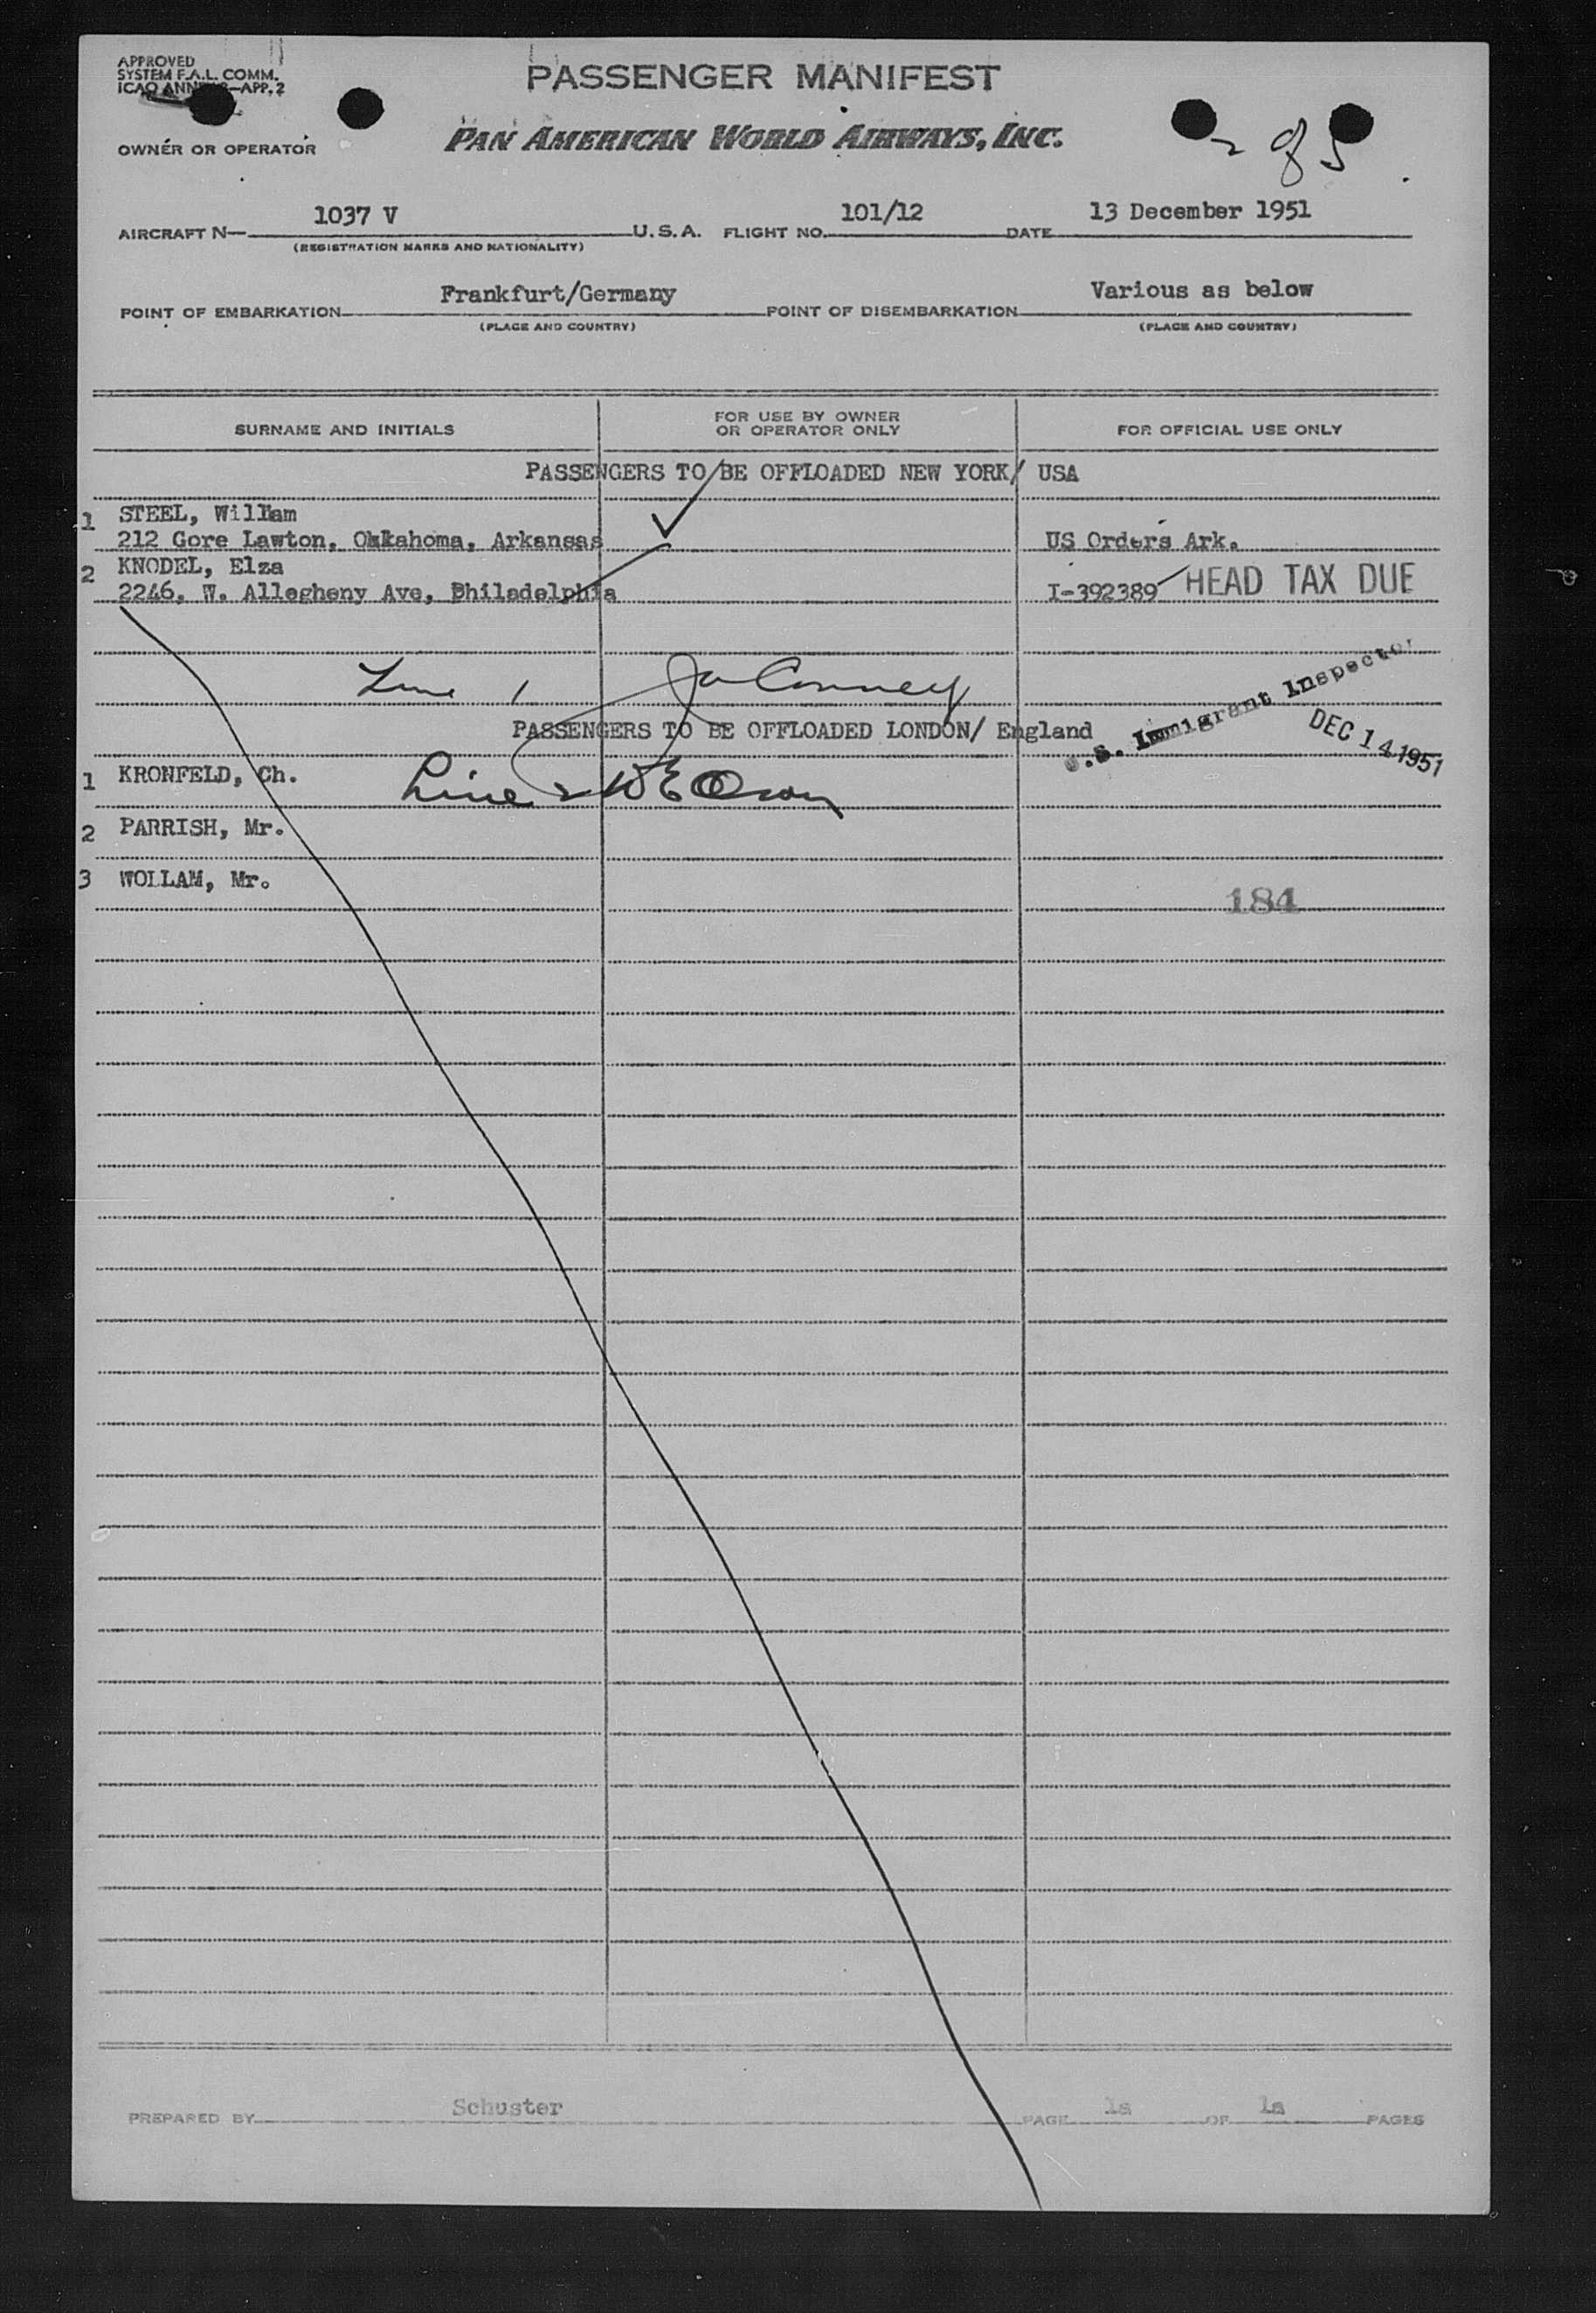 APPROVED
SYSTEM F.A.L. COMM.
ICAO ANN —APP. 2
PASSENGER MANIFEST
OWNER OR OPERATOR
PAN AMERICAN WORLD AIRWAYS, INC.
2 of 5
AIRCRAFT N— 1037 V U.S.A. FLIGHT NO. 101/12 DATE 13 December 1951
(REGISTRATION MARKS AND NATIONALITY)
POINT OF EMBARKATION Frankfurt/Germany POINT OF DISEMBARKATION Various as below
(PLACE AND COUNTRY) (PLACE AND COUNTRY)
SURNAME AND INITIALS FOR USE BY OWNER OR OPERATOR ONLY FOR OFFICIAL USE ONLY
PASSENGERS TO BE OFFLOADED NEW YORK/ USA
1 STEEL, William
212 Gore Lawton, Oklahoma, Arkansas US Orders Ark.
2 KNODEL, Elza
2246, W. Allegheny Ave, Philadelphia I-392389 HEAD TAX DUE
Line 1
U.S. Immigrant Inspector
PASSENGERS TO BE OFFLOADED LONDON/ England
DEC 14 1951
1 KRONFELD, Ch.
Line 2
2 PARRISH, Mr.
3 WOLLAM, Mr.
184
PREPARED BY Schuster PAGE 1a OF 1a PAGES